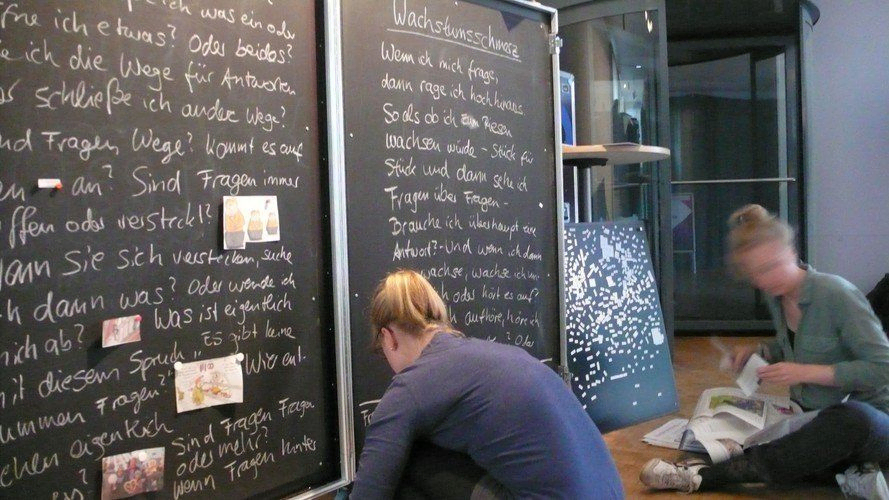 ich was ein oder
ich etwas? Oder beides?
ich die Wege für Antworten
schließe ich andere Wege?
Fragen, Wege? Kommt es auf
an? Sind Fragen immer
offen oder versteckt?
Wann sie sich verstecken, suche
ich dann was? Oder wende ich
mich ab? Was ist eigentlich
mit diesem Spruch "Es gibt keine
dummen Fragen?" Wie
eigentlich
Sind Fragen Fragen
oder mehr?
Wenn Fragen hinter
Wachstumsschmerz
Wenn ich mich frage,
dann rage ich hoch hinaus.
So als ob ich zum Riesen
wachsen würde - Stück für
Stück und dann sehe ich
Fragen über Fragen -
Brauche ich überhaupt eine
Antwort? - Und wenn ich dann
wachse, wachse ich
oder hört es auf?
aufhöre, höre ich
? Oder